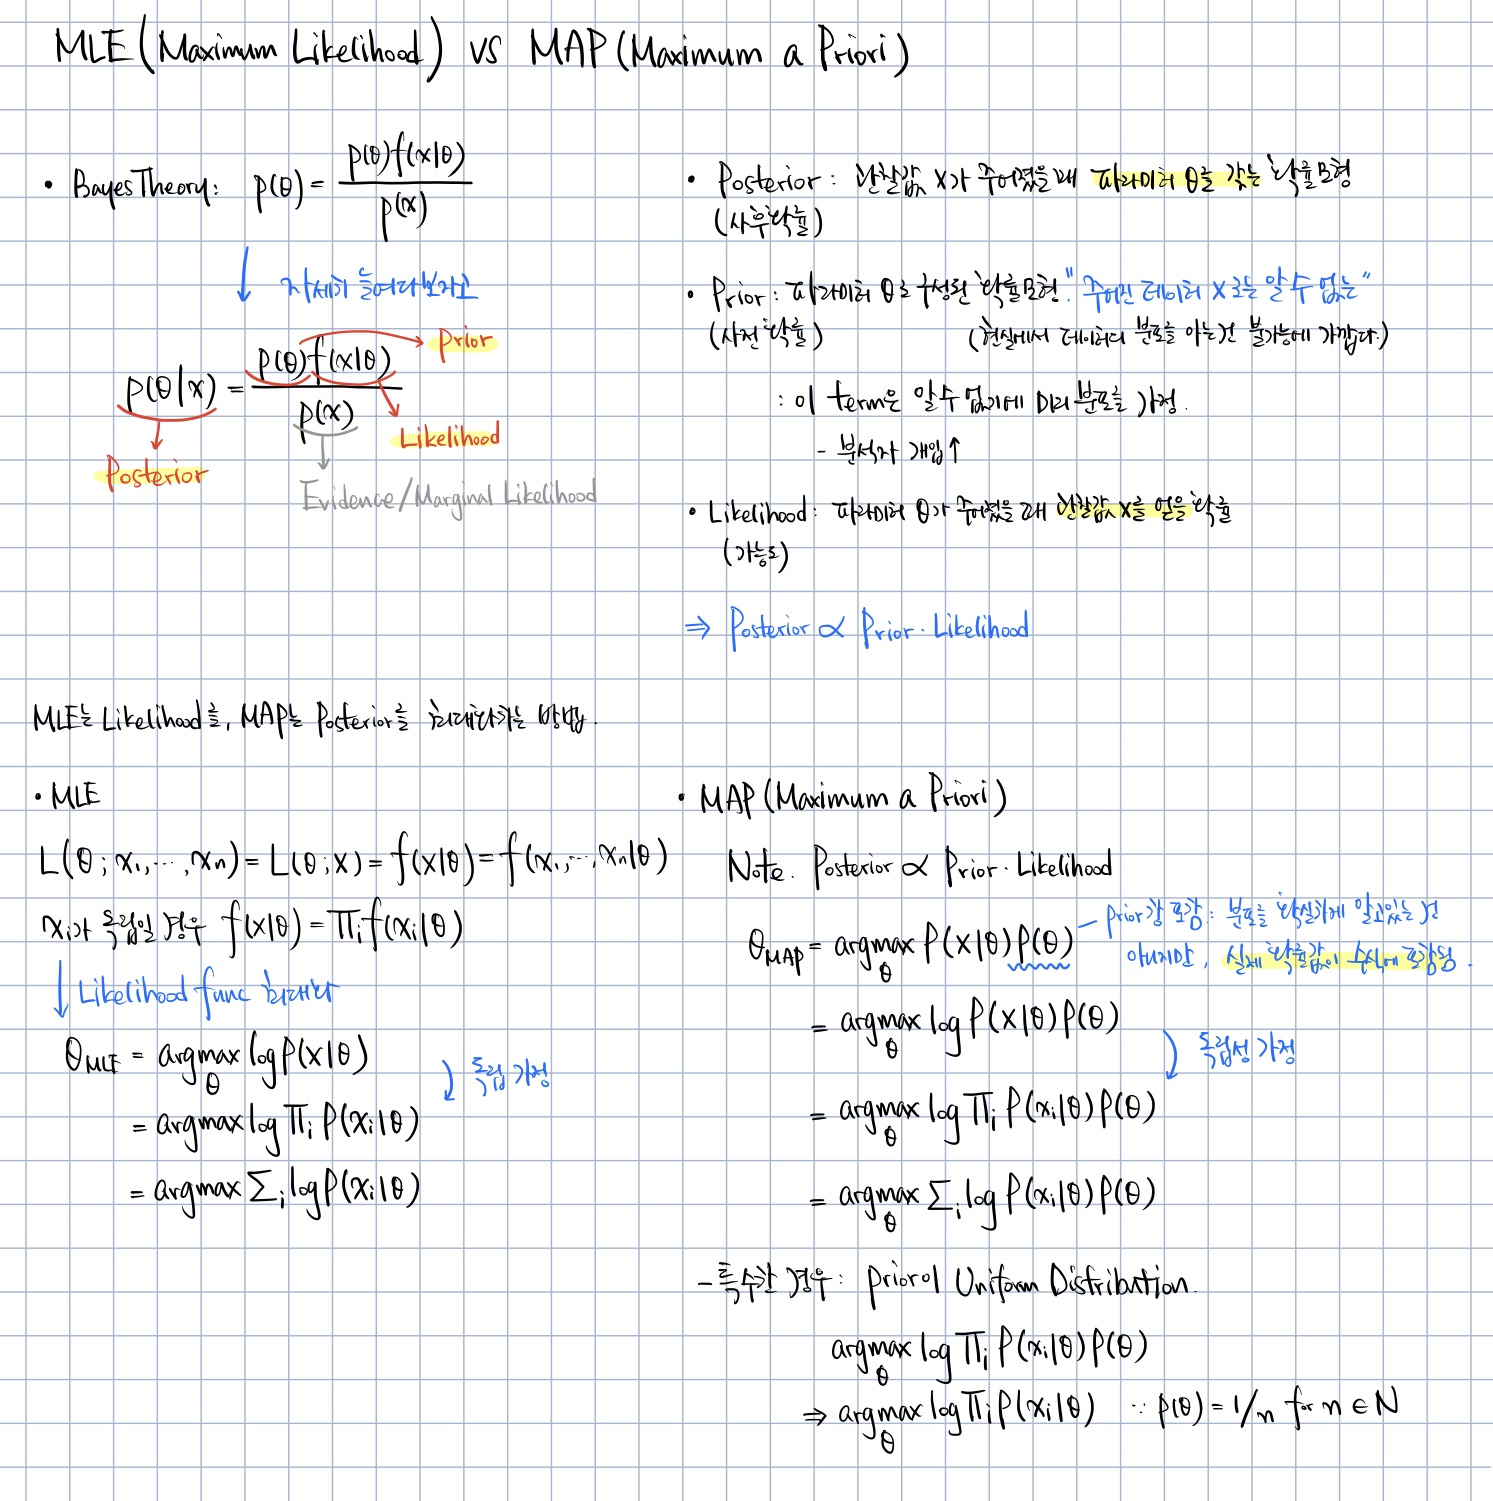 MLE(Maximum Likelihood) vs MAP(Maximum a Priori)
• Bayes Theory: p(θ) = p(θ)f(x|θ) / p(x)
↓ 자세히 들여다보자고
p(θ|x) = p(θ)f(x|θ) / p(x)
Prior
Likelihood
Posterior
Evidence/Marginal Likelihood
• Posterior: 관찰값 x가 주어졌을 때 파라미터 θ를 갖는 확률모형
(사후확률)
• Prior: 파라미터 θ로 구성된 확률모형. "주어진 데이터 X로는 알 수 없는"
(사전확률) (현실에서 데이터의 분포를 아는건 불가능에 가깝다.)
: 이 term은 알 수 없기에 미리 분포를 가정.
- 분석자 개입↑
• Likelihood: 파라미터 θ가 주어졌을 때 관찰값 X를 얻을 확률
(가능도)
⇒ Posterior ∝ Prior · Likelihood
MLE는 Likelihood를, MAP는 Posterior를 최대화하는 방법.
• MLE
L(θ; x₁, ..., xₙ) = L(θ; x) = f(x|θ) = f(x₁, ..., xₙ|θ)
xᵢ가 독립일 경우 f(x|θ) = Πᵢ f(xᵢ|θ)
↓ Likelihood func 최대화
θMLE = argmax_θ log P(x|θ)
독립 가정
= argmax log Πᵢ P(xᵢ|θ)
= argmax Σᵢ log P(xᵢ|θ)
• MAP(Maximum a Priori)
Note. Posterior ∝ Prior · Likelihood
θMAP = argmax_θ P(x|θ)P(θ)
prior항 포함: 분포를 확실하게 알고있는 건
아니지만, 실제 확률값이 수식에 포함됨.
= argmax_θ log P(x|θ)P(θ)
독립성 가정
= argmax_θ log Πᵢ P(xᵢ|θ)P(θ)
= argmax_θ Σᵢ log P(xᵢ|θ)P(θ)
- 특수한 경우: prior이 Uniform Distribution.
argmax_θ log Πᵢ P(xᵢ|θ)P(θ)
⇒ argmax_θ log Πᵢ P(xᵢ|θ) ∵ p(θ) = 1/n for n ∈ N